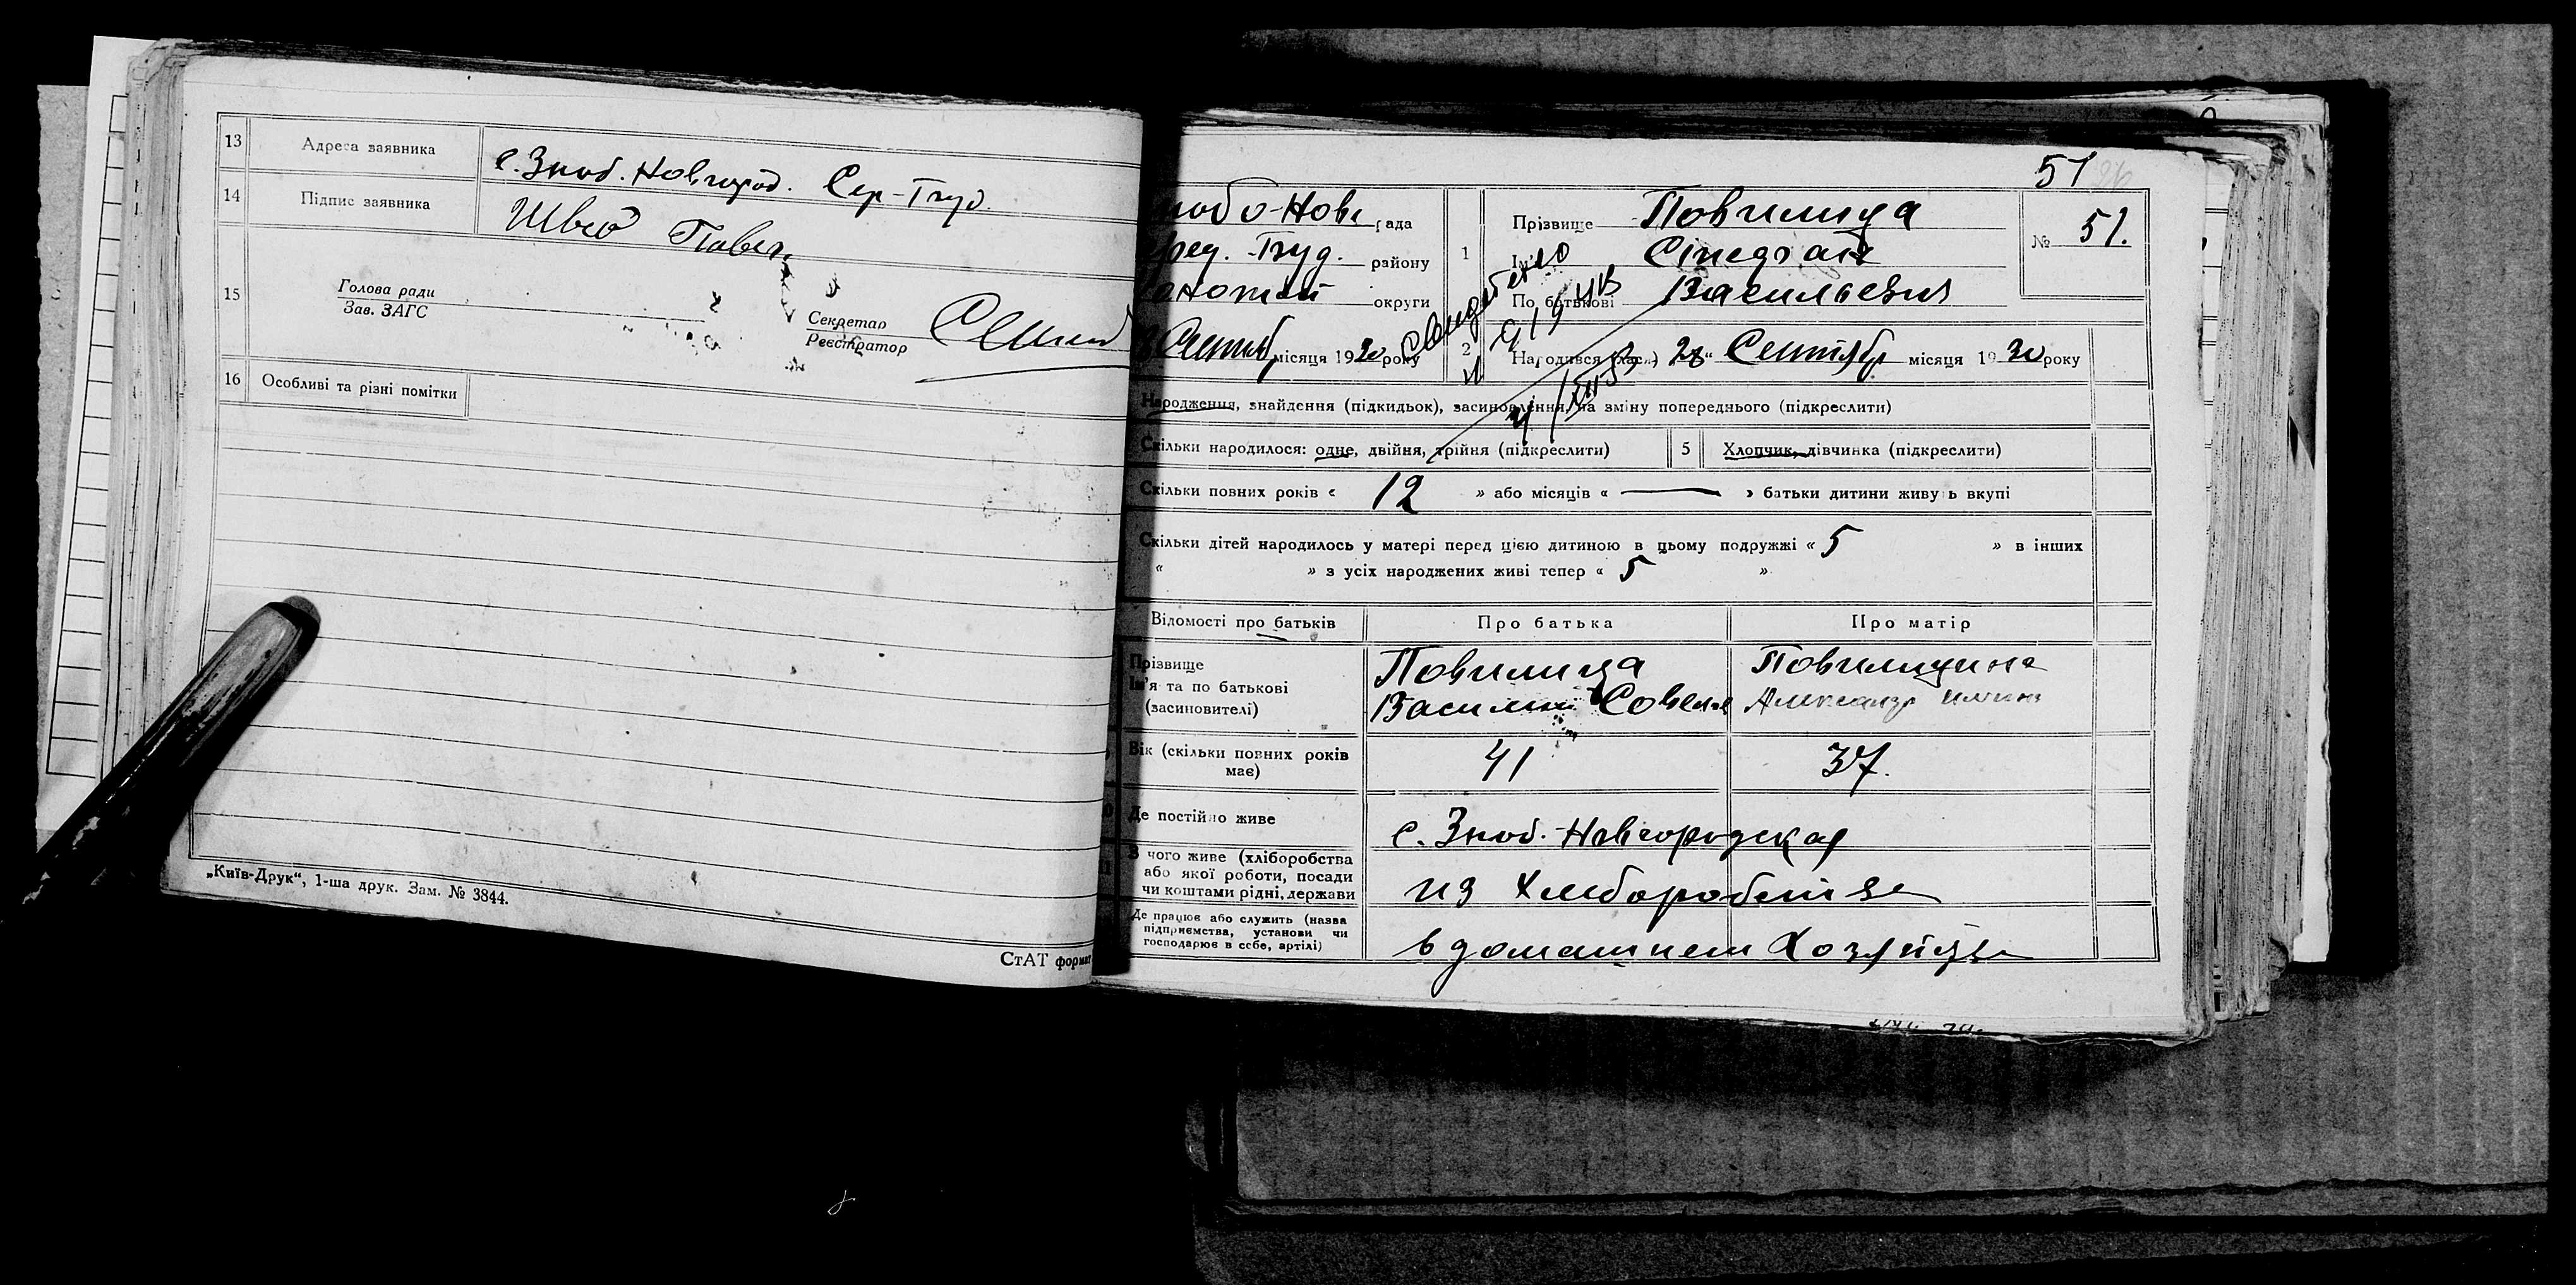 13 Адреса заявника с. Зноб. Новгород. Сер-Буд.
14 Підпис заявника Швед Павел
15 Голова ради
Зав. ЗАГС
Секретар
Реєстратор
16 Особливі та різні помітки
„Київ-Друк“, 1-ша друк. Зам. № 3844.
СтАТ формат
51
нобо-Нов рада
ред.-Буд. району
округи
Сентяб місяця 1930 року
1 Прізвище Повилица
Ім'я Степан
По батькові Васильевич
№ 51.
2 Народився (лась) 28 Сентябр місяця 1930 року
Народження, знайдення (підкидьок), засиновлення, на зміну попереднього (підкреслити)
Скільки народилося: одне, двійня, трійня (підкреслити) 5 Хлопчик, дівчинка (підкреслити)
Скільки повних років « 12 » або місяців « — » батьки дитини живуть вкупі
Скільки дітей народилось у матері перед цією дитиною в цьому подружжі « 5 » в інших
« » з усіх народжених живі тепер « 5 »
Відомості про батьків Про батька Про матір
Прізвище Повилица Повилицина
Ім'я та по батькові Василий Савел Александр
(засиновителі)
Вік (скільки повних років 41 37.
має)
Де постійно живе с. Зноб.-Новгородская
З чого живе (хліборобства
або якої роботи, посади
чи коштами рідні, держави из Хлеборобства
Де працює або служить (назва
підприємства, установи чи
господарює в себе, артілі) в домашнем Хозяйстве